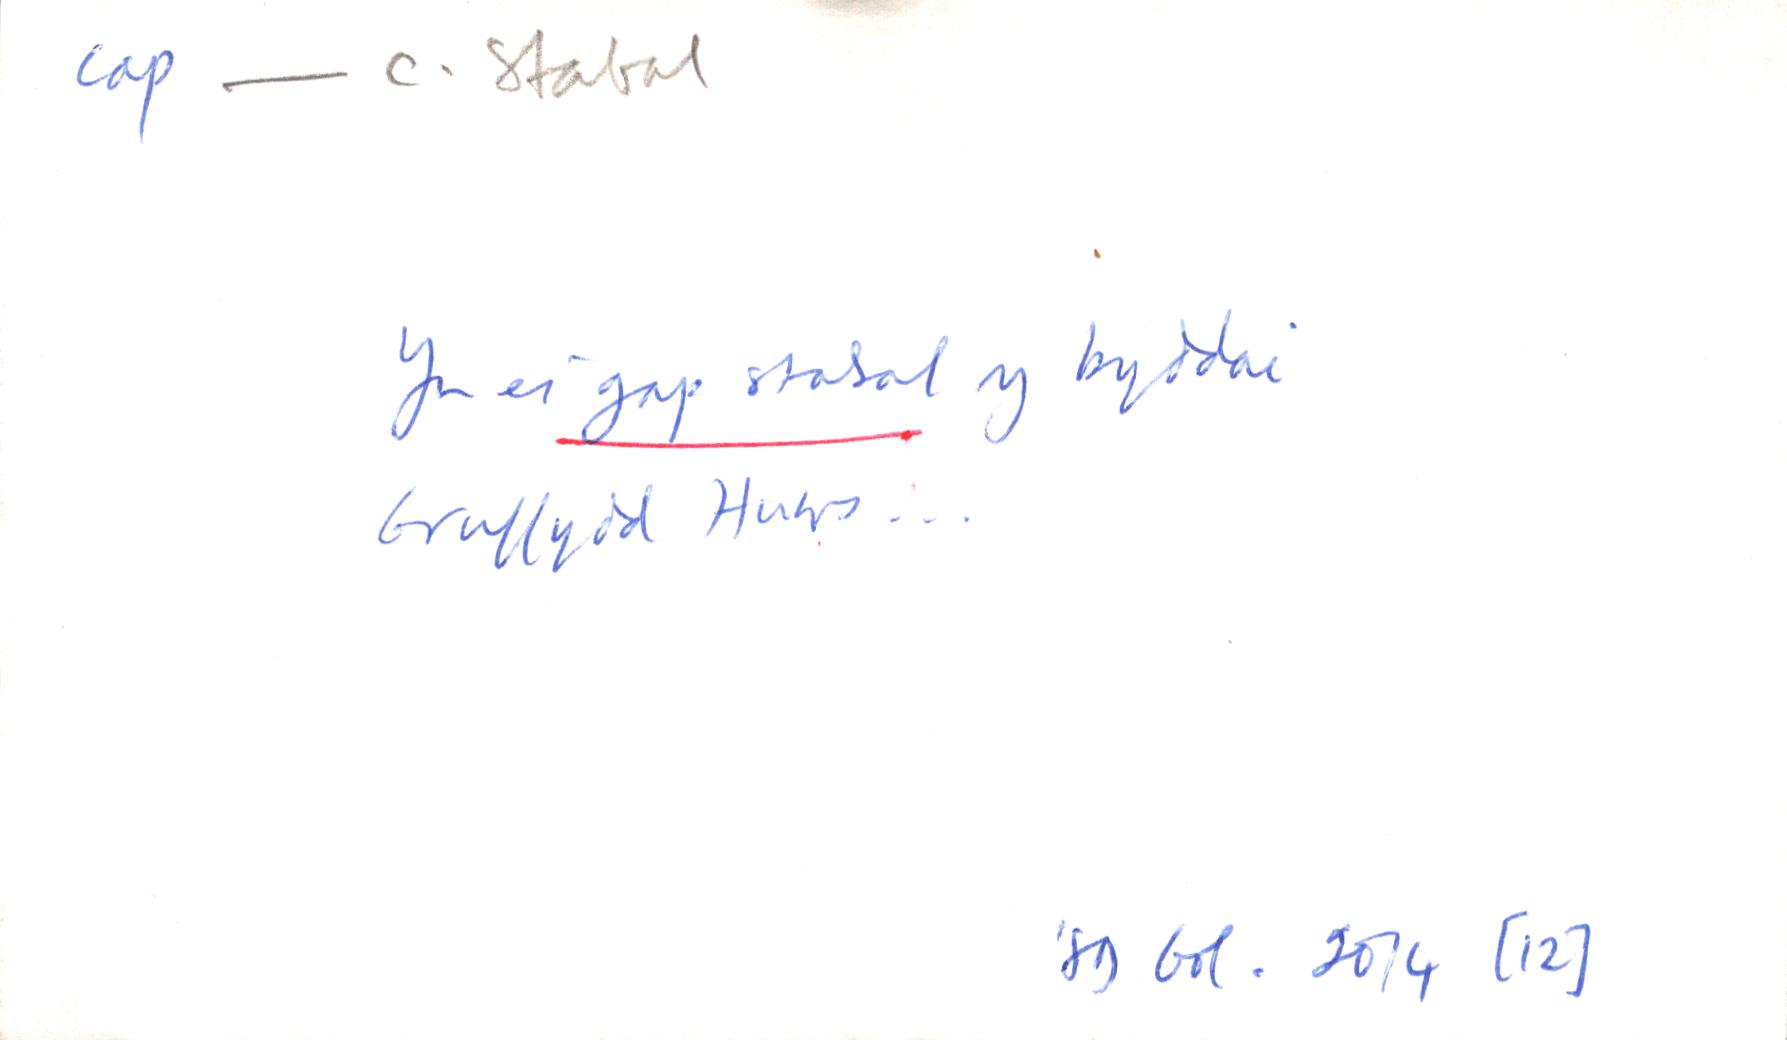 cap — c. stabal
Yn ei gap stabal y byddai
Gruffydd Huws ...
'89 Gol. 20/4 [12]